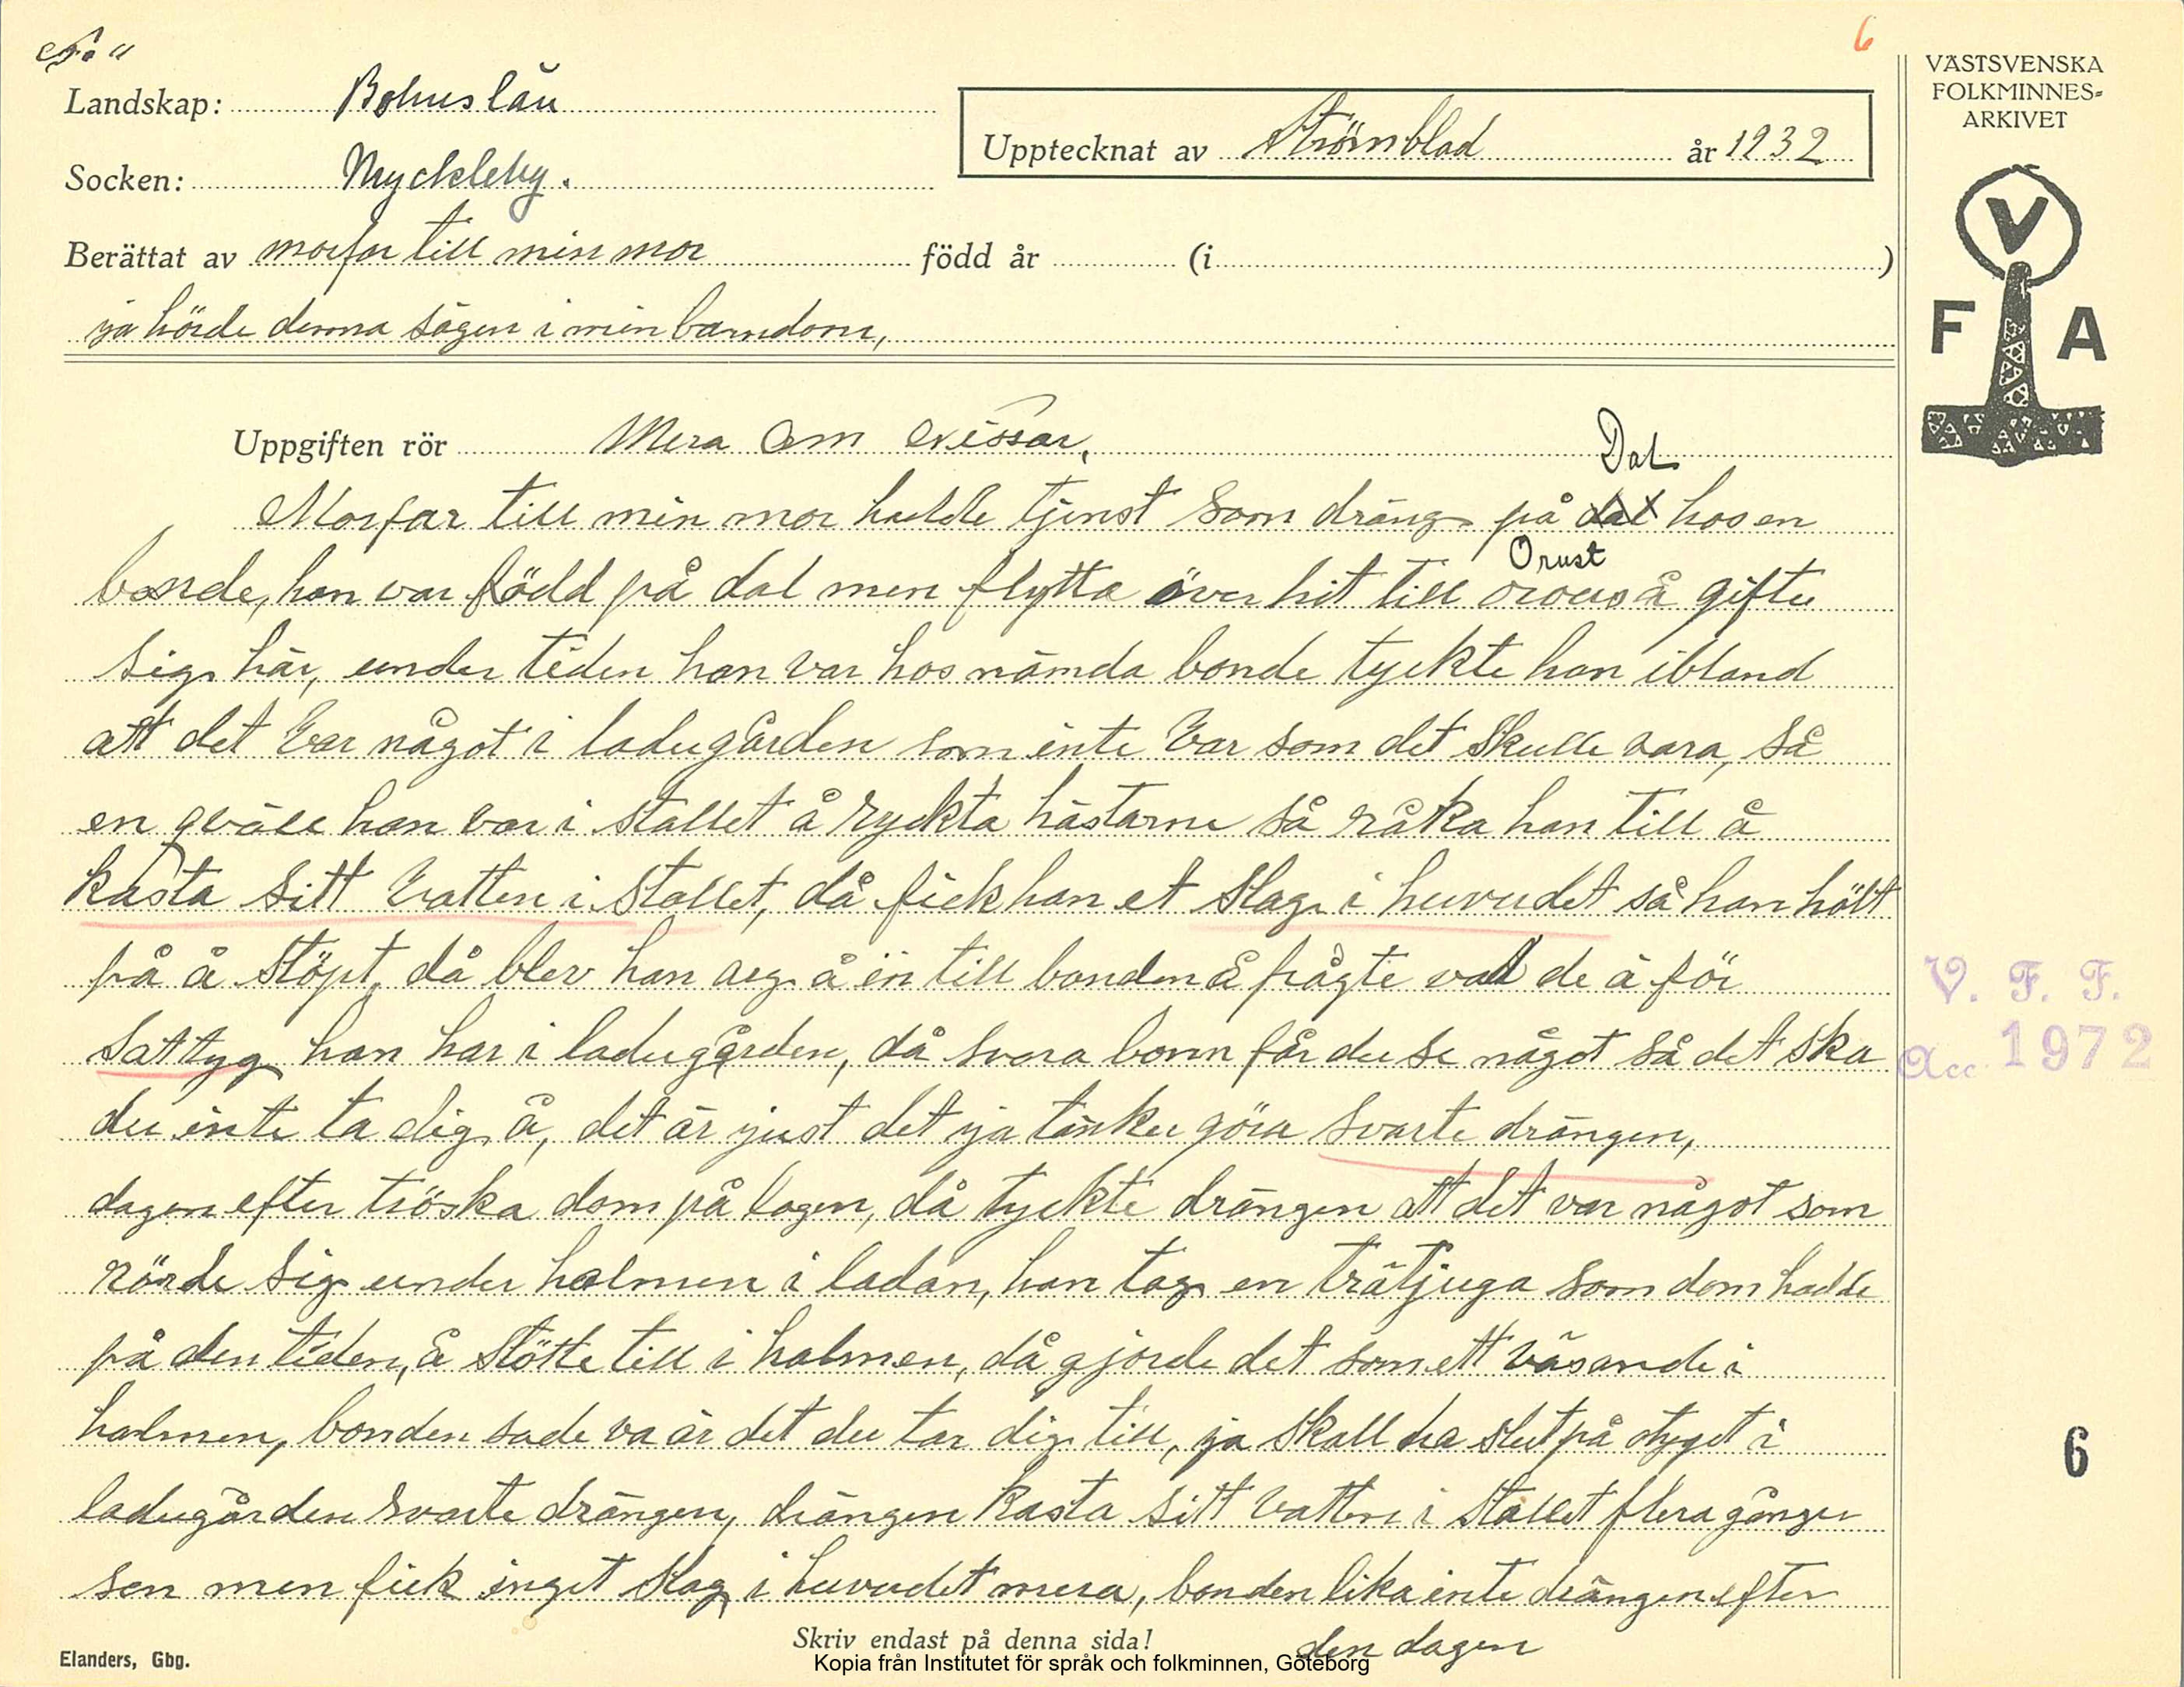 6
VÄSTSVENSKA
FOLKMINNES-
ARKIVET
Landskap: Bohuslän
Upptecknat av Strömblad år 1932
Socken: Myckleby.
Berättat av morfar till min mor född år (i )
ja hörde denna sägen i min barndom,
V
F A
Uppgiften rör Mera Om nissar,
Dal
Morfar till min mor hadde tjenst som dräng på dal hos en
Orust
bonde, han var född på dal men flytta över hit till orous å gifte
sig här, under tiden han var hos nämda bonde tyckte han ibland
att det var något i ladugården som inte var som det skulle vara, så
en qväll han var i stallet å ryckta hästarne så råka han till å
kasta sitt vatten i stallet, då fick han et slag i huvudet så han hölt
på å stöpt, då blev han arg å in till bonden å frågte vad de ä för
sattyg han har i ladugården, då svara bonn får du se något så det ska
du inte ta dig å, det är just det ja tänker göra svarte drängen,
dagen efter tröska dom på logen, då tyckte drängen att det var något som
rörde sig under halmen i ladan, han tog en trätjuga som dom hadde
på den tiden, å stötte till i halmen, då gjorde det som ett väsande i
halmen, bonden sade va är det du tar dig till, ja skall ha slut på otyget i
ladugården svarte drängen, drängen kasta sitt vatten i stallet flera gånger
sen men fick inget slag i huvudet mera, bonden lika inte drängen efter
den dagen
V. F. F.
Acc. 1972
6
Skriv endast på denna sida!
Elanders, Gbg.
Kopia från Institutet för språk och folkminnen, Göteborg